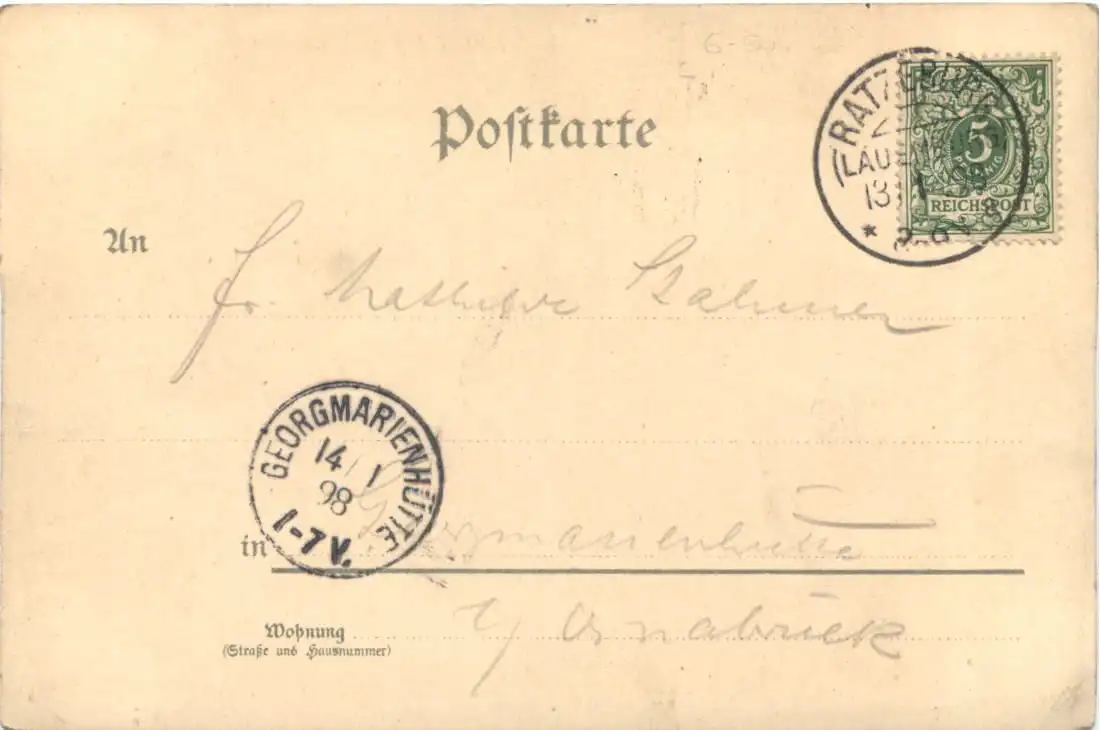 Postkarte
RATZEBURG
(LAUENBURG)
13 1 98
5
PFENNIG
REICHSPOST
An
Fr.
GEORGMARIENHÜTTE
14 1
98
1-7 V.
in Georgmarienhütte
b/ Osnabrück
Wohnung
(Straße und Hausnummer)